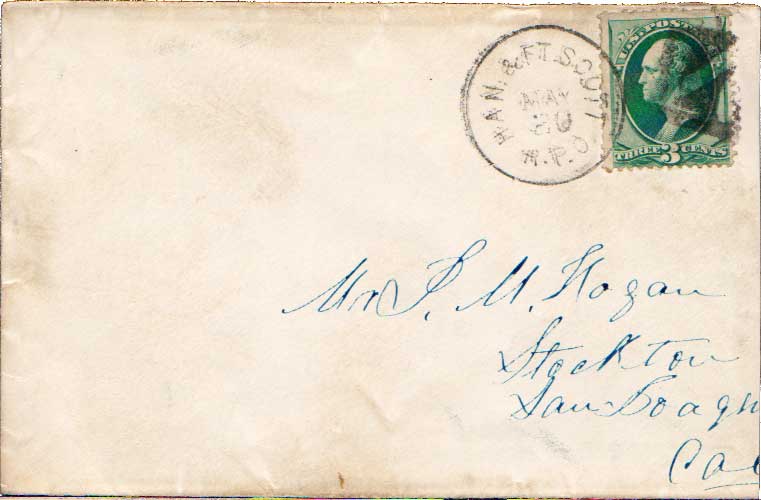 HAN. & FT. SCOTT
MAY
20
R.P.O
U.S. POSTAGE
THREE 3 CENTS
Mr M. Hogan
Stockton
San Joaqu
Cal